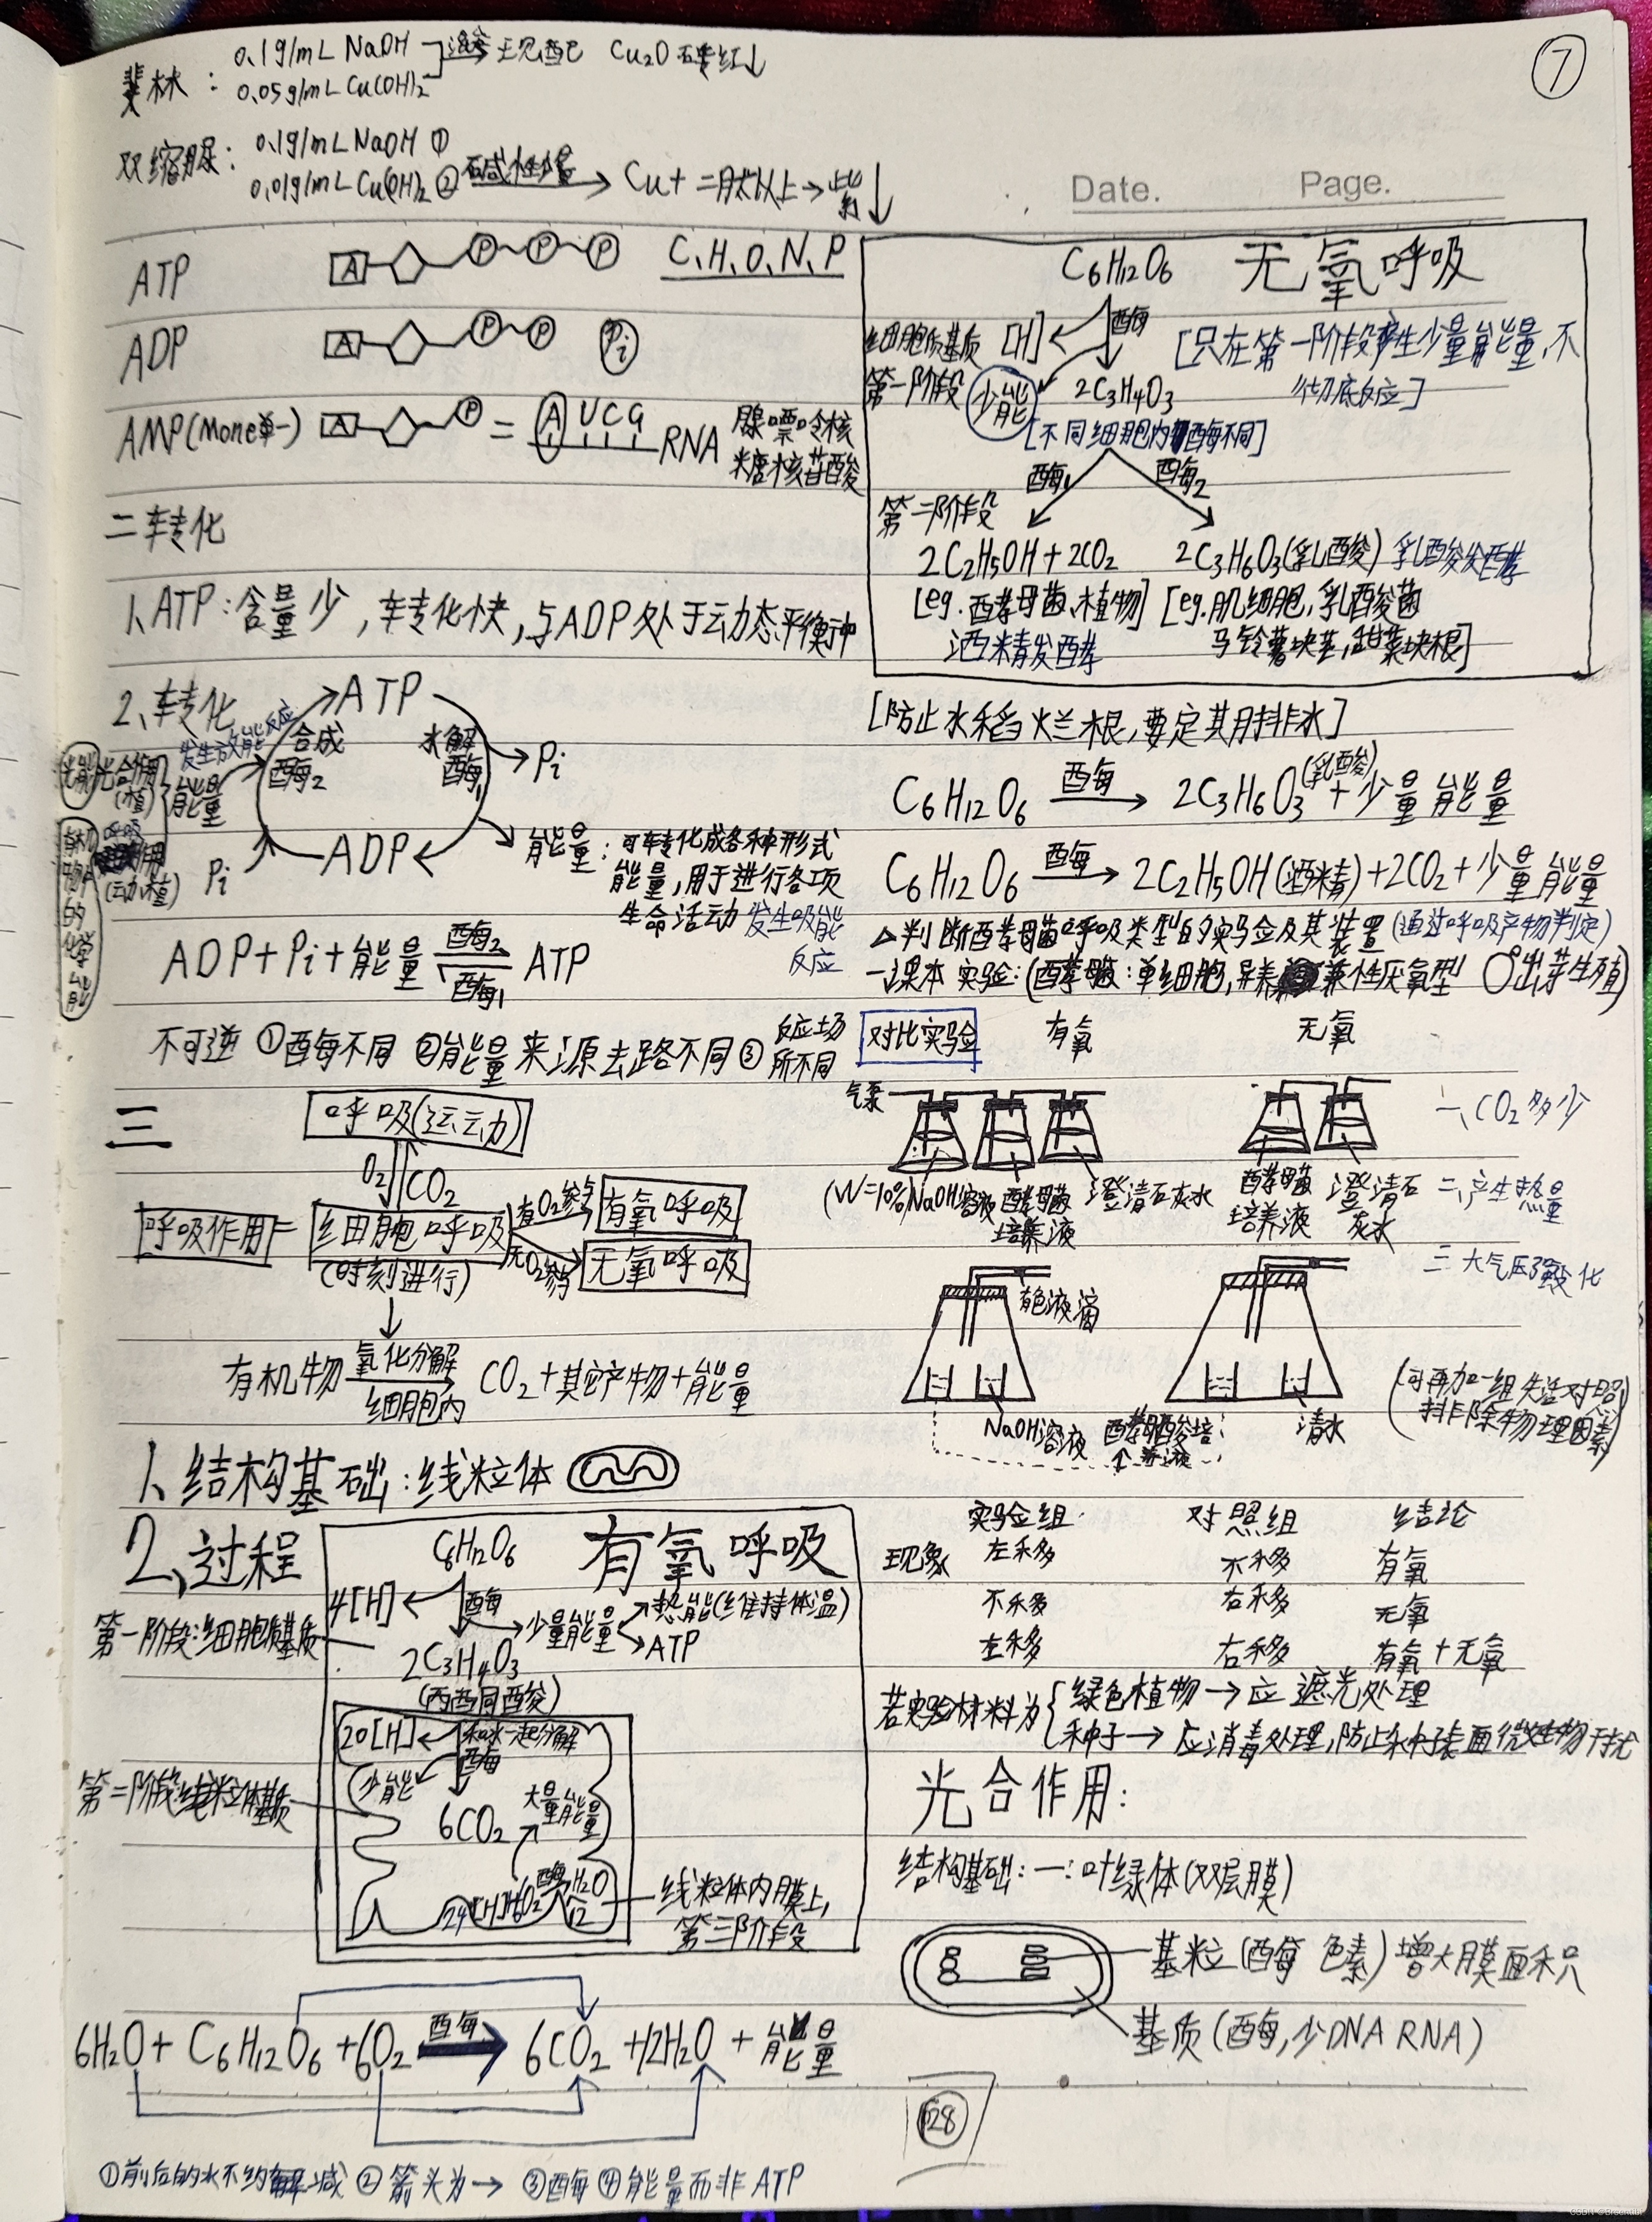 ⑦
斐林:
0.1g/mL NaOH
0.05g/mL Cu(OH)2
现配 Cu2O 砖红↓
双缩脲:
0.1g/mL NaOH ①
0.01g/mL Cu(OH)2 ②
碱性
Cu+ 二肽以上→紫↓
Date. Page.
ATP A P~P~P C、H、O、N、P
ADP A P~P Pi
AMP(Mone单一) A P = A U C G RNA 腺嘌呤核
糖核苷酸
二转化
1、ATP:含量少,转化快,与ADP处于动态平衡中
2、转化
ATP
发生放能反应
合成
酶2
水解
酶1
Pi
光能
光合作用
(植)
能量
有机物中的化学能
呼吸作用
(动、植)
Pi
ADP
能量:可转化成各种形式
能量,用于进行各项
生命活动 发生吸能
反应
ADP+Pi+能量 酶2 酶1 ATP
不可逆 ①酶不同 ②能量来源去路不同 ③反应场
所不同
三
呼吸(运动)
O2 CO2
呼吸作用= 细胞呼吸
(时刻进行)
有O2参与 有氧呼吸
无O2参与 无氧呼吸
有机物 氧化分解 细胞内 CO2+其它产物+能量
1、结构基础:线粒体
2、过程
C6H12O6 有氧呼吸
4[H] 酶 少量能量 热能(维持体温)
ATP
第一阶段:细胞质基质
2C3H4O3
(丙酮酸)
20[H] 和水一起分解
酶
少能
第二阶段:线粒体基质
6CO2 大量能量
24[H] 6O2 酶 12H2O
线粒体内膜上,
第三阶段
6H2O+C6H12O6+6O2 酶→ 6CO2+12H2O+能量
①前后的水不约减 ②箭头为→ ③酶 ④能量而非ATP
C6H12O6 无氧呼吸
细胞质基质 [H] 酶
第一阶段 少能 2C3H4O3
[只在第一阶段产生少量能量,不
彻底反应]
[不同细胞内酶不同]
酶1 酶2
第二阶段
2C2H5OH+2CO2 2C3H6O3(乳酸) 乳酸发酵
[eg.酵母菌、植物] [eg.肌细胞,乳酸菌
酒精发酵 马铃薯块茎,甜菜块根]
[防止水稻烂根,要定期排水]
C6H12O6 酶→ 2C3H6O3(乳酸)+少量能量
C6H12O6 酶→ 2C2H5OH(酒精)+2CO2+少量能量
△判断酵母菌呼吸类型的实验及其装置(通过呼吸产物判定)
一课本实验:(酵母菌:单细胞,异养兼性厌氧型 出芽生殖)
对比实验 有氧 无氧
气泵
一、CO2多少
(W=10%)NaOH溶液 酵母菌
培养液 澄清石灰水
酵母菌
培养液 澄清石
灰水
二、产生热量
三 大气压强变化
有色液滴
NaOH溶液 酵母菌培
养液 清水
(可再加一组失活对照
排除物理因素)
实验组 对照组 结论
现象 左移 不移 有氧
不移 右移 无氧
左移 右移 有氧+无氧
若实验材料为{绿色植物→应遮光处理
种子→应消毒处理,防止种子表面微生物干扰
光合作用:
结构基础:一:叶绿体(双层膜)
基粒(酶 色素)增大膜面积
基质(酶,少DNA RNA)